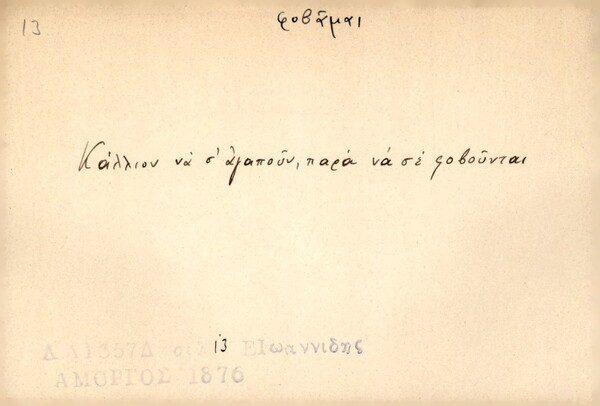 13
φοβᾶμαι
Κάλλιον νὰ σ' ἀγαποῦν, παρὰ νὰ σὲ φοβοῦνται
13 ΕΙωαννιδης
ΑΜΟΡΓΟΣ 1876